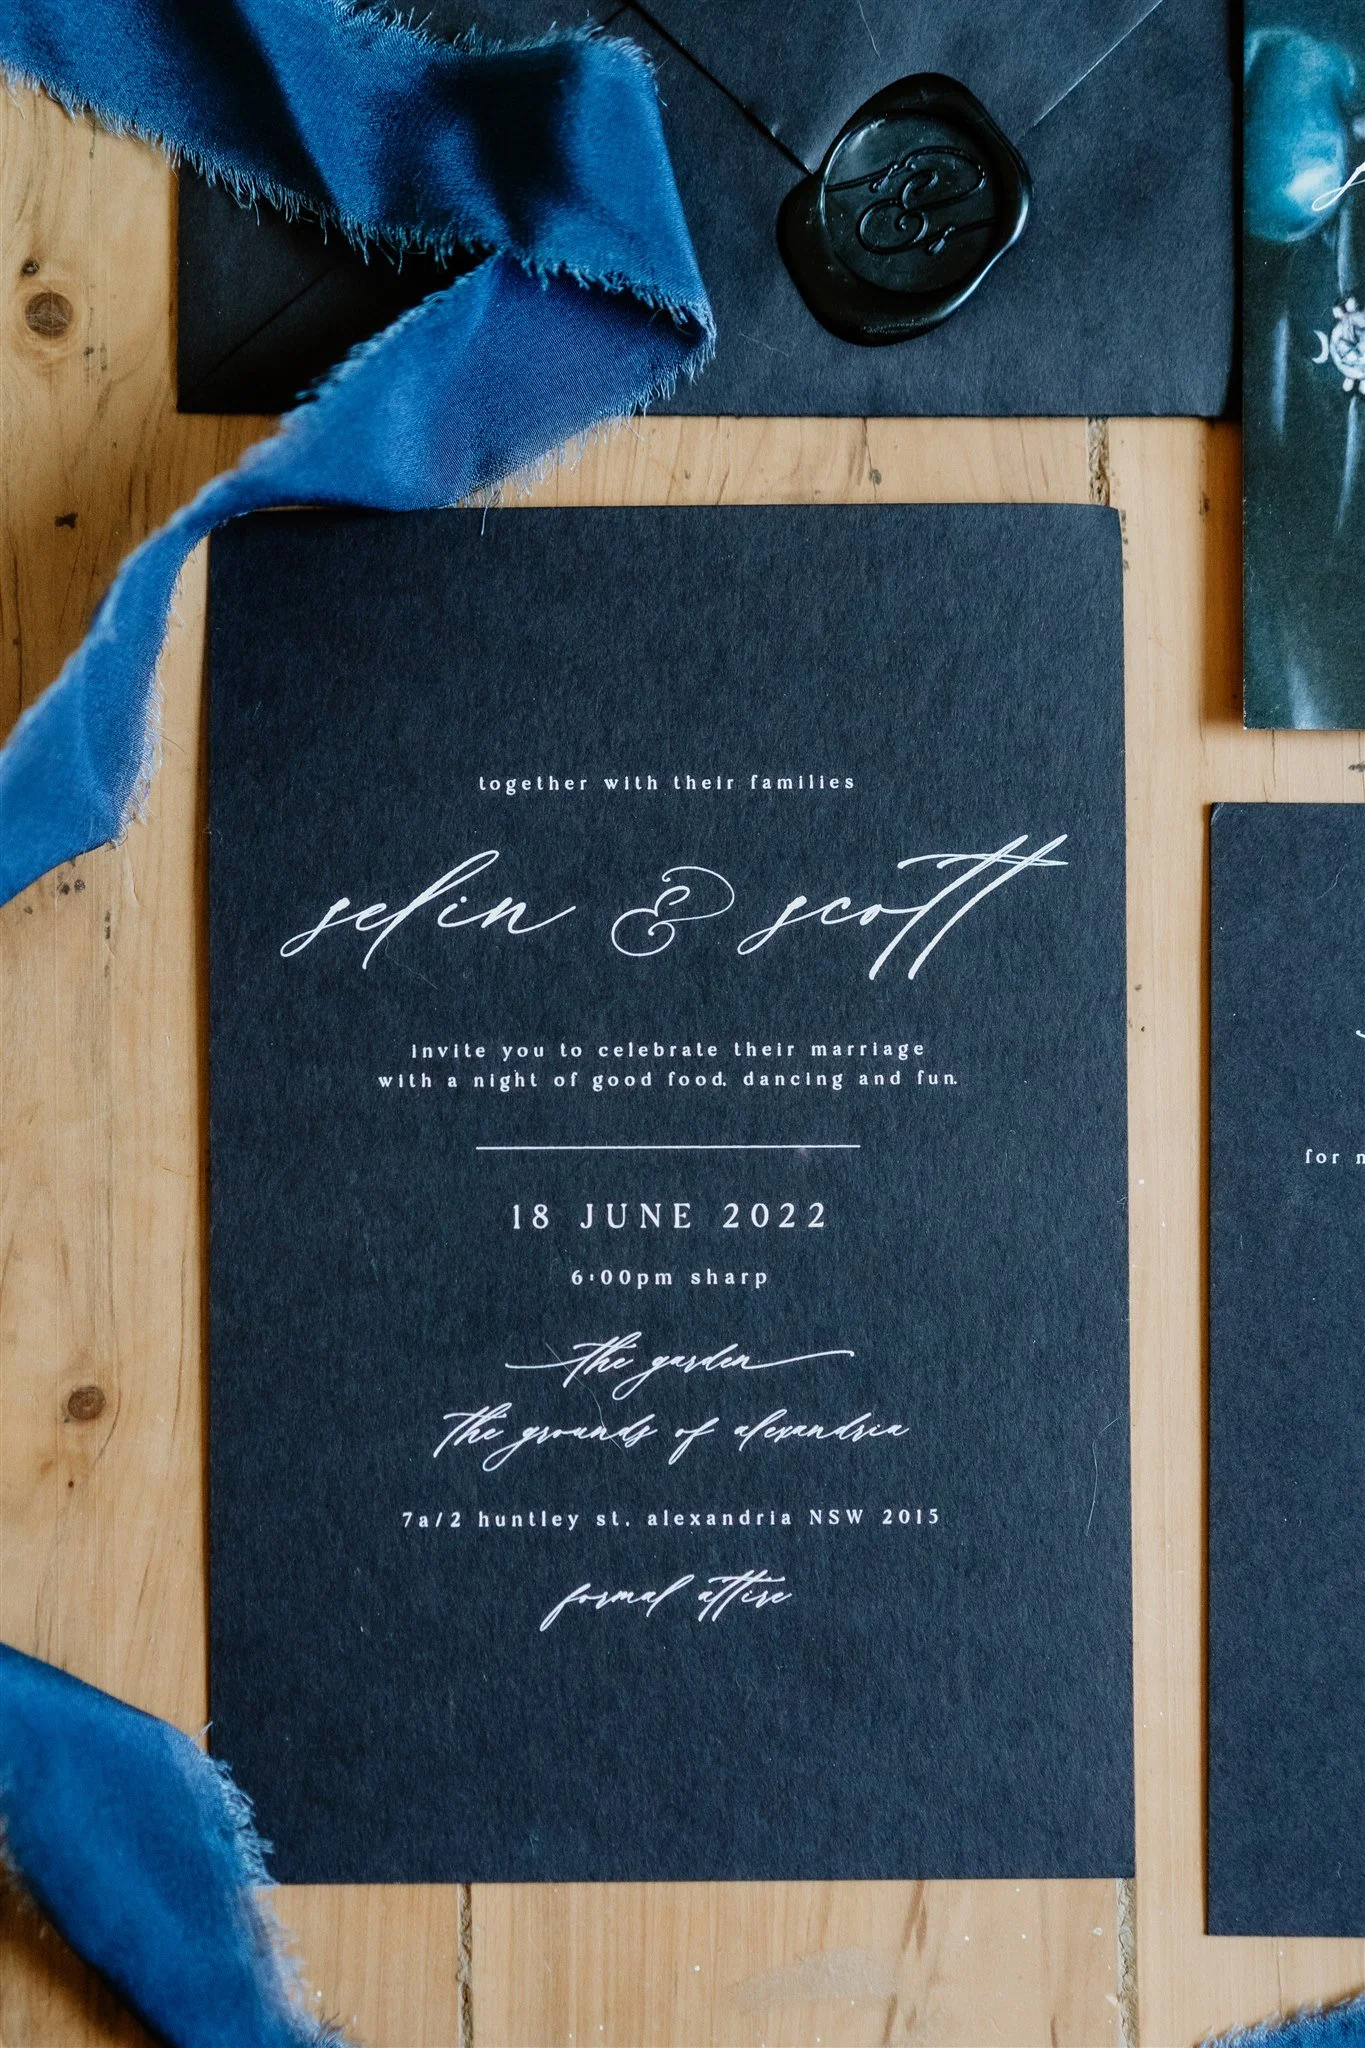 together with their families
selin & scott
invite you to celebrate their marriage
with a night of good food, dancing and fun.
18 JUNE 2022
6:00pm sharp
the garden
the grounds of alexandria
7a/2 huntley st, alexandria NSW 2015
formal attire
for